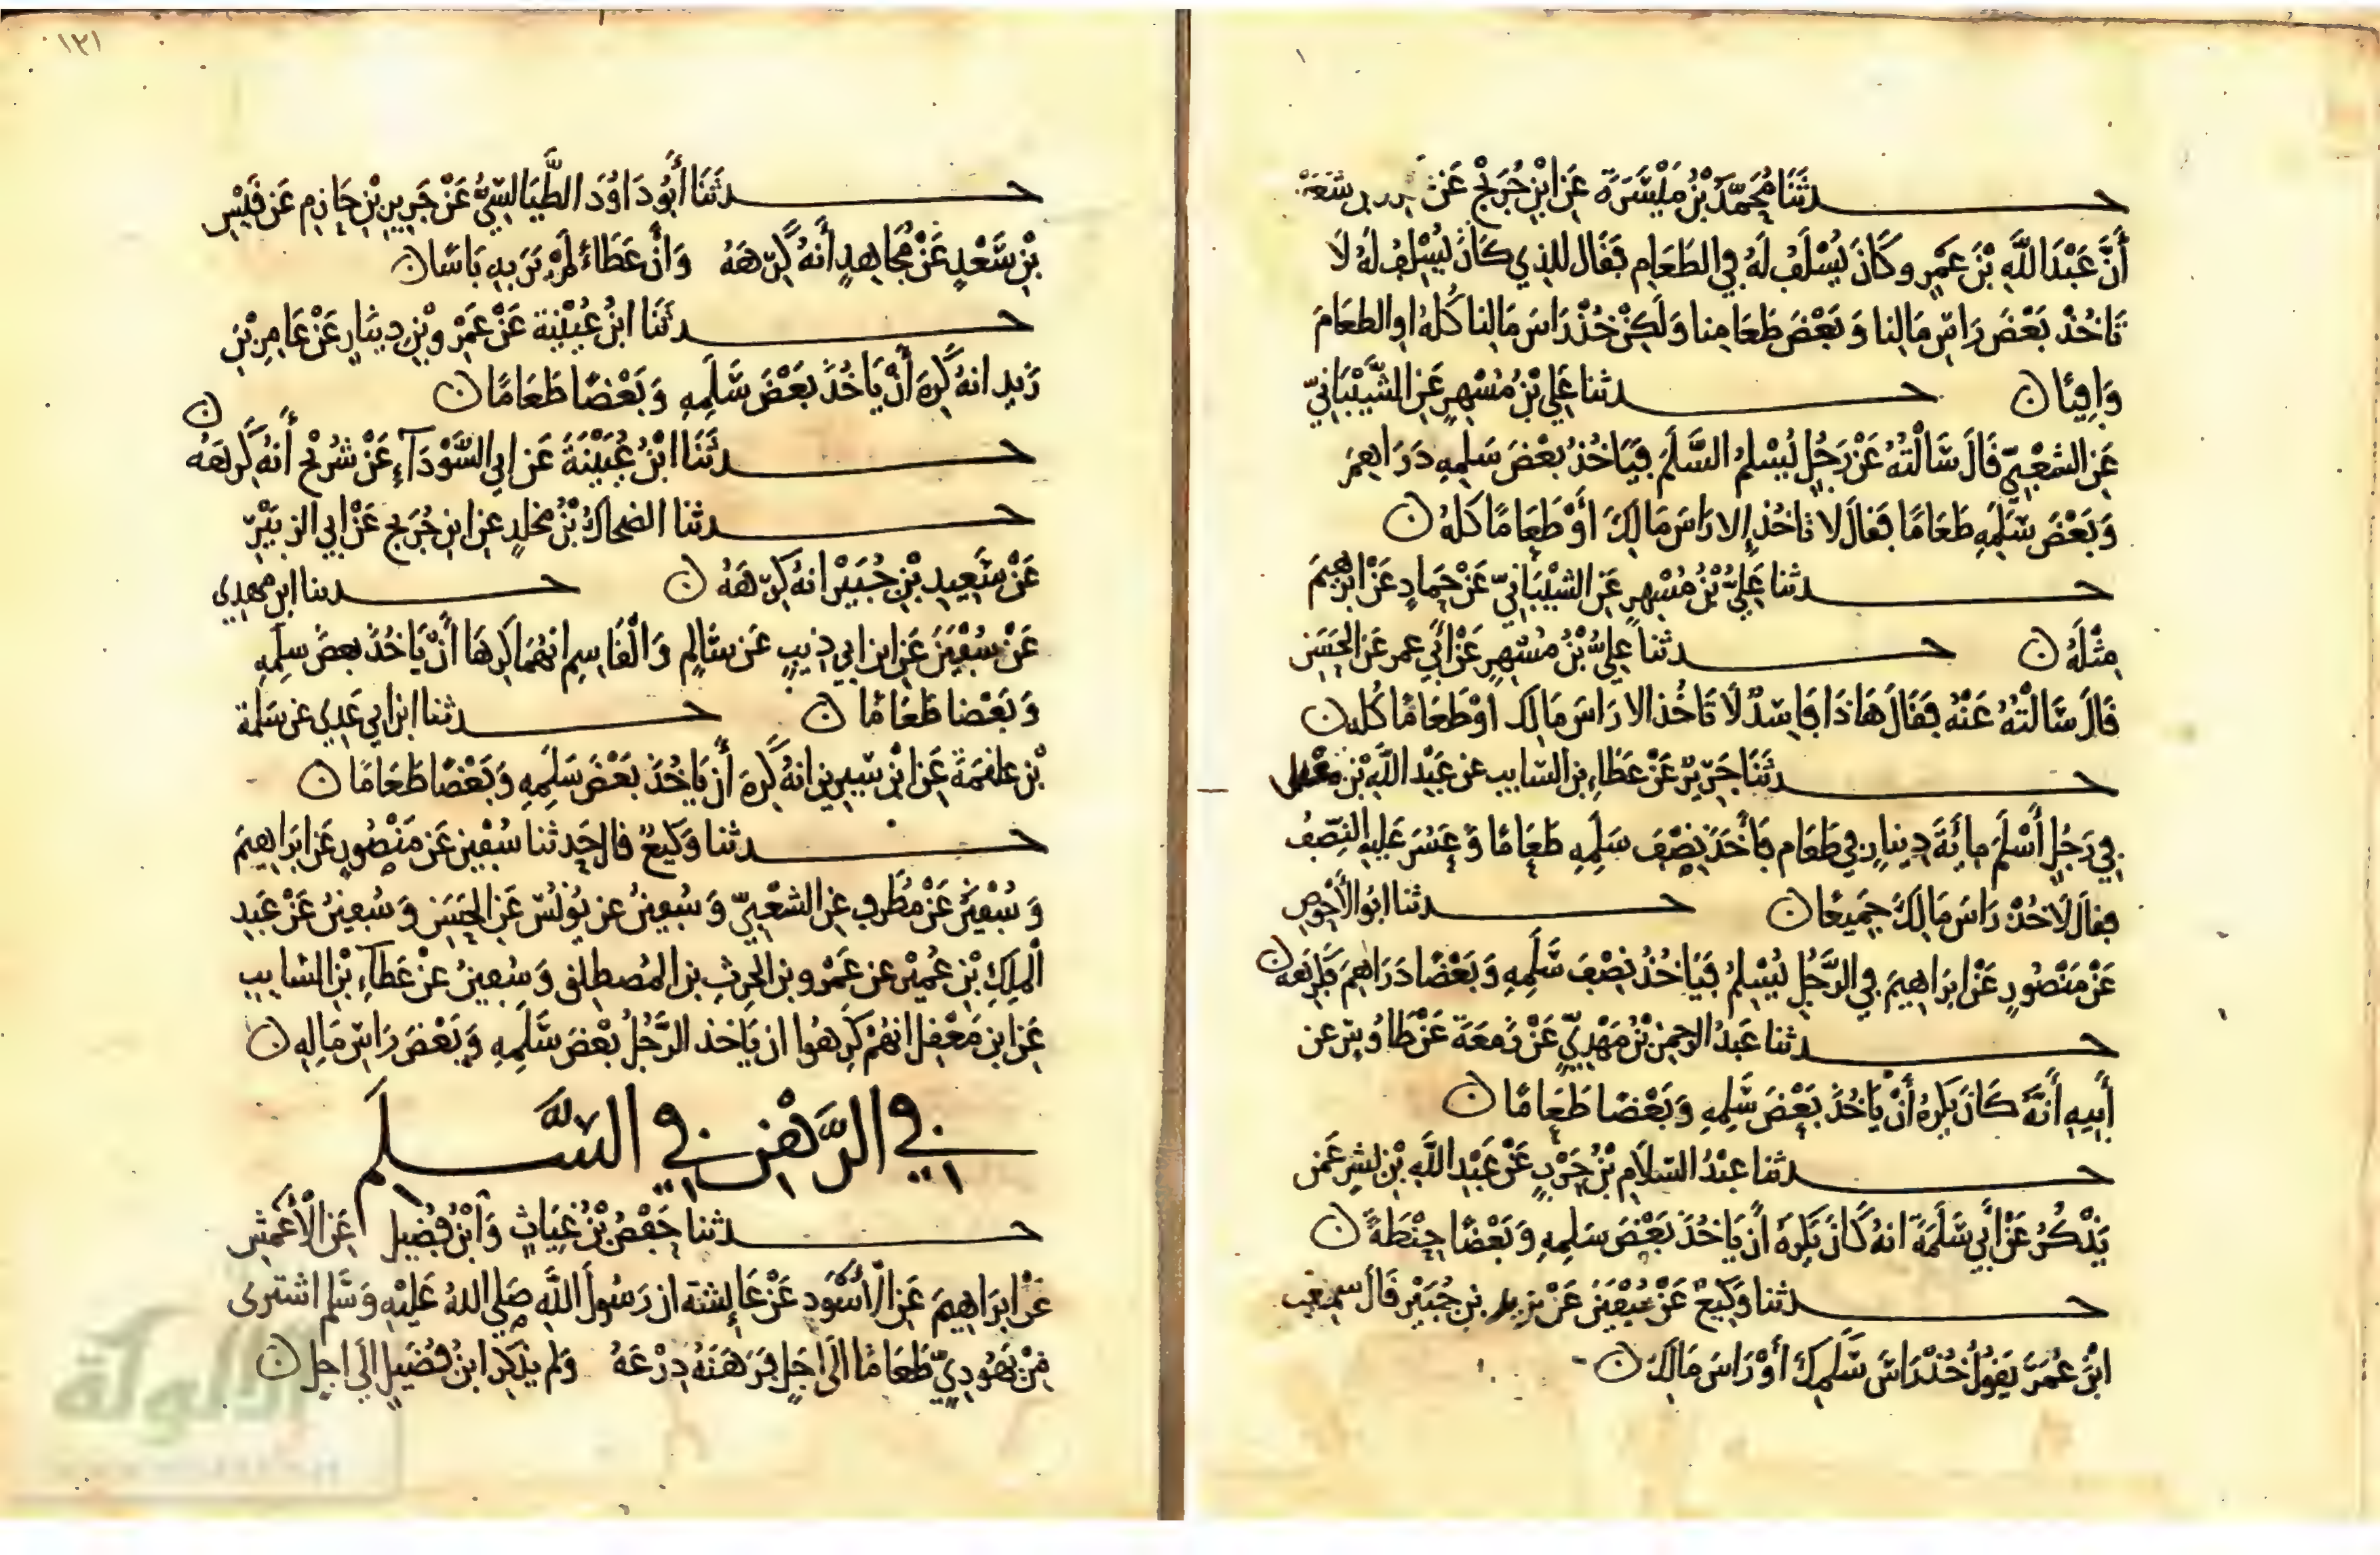 حدثنا محمد بن ميسرة عن ابن جريج عن
أنَّ عَبْدَ اللَّهِ بْنَ عمرو كَانَ يُسْلَفُ لَهُ في الطَعَام فَقَال للذي كَانَ يُسْلِف لَهُ لَا
تَاخُذْ بَعْضَ رَاسِ مَالِنا وَبَعْضَ طَعَامِنا وَلَكِنْ خُذْ رَاسَ مَالِنا كُلهُ او الطعَامَ
وَافِيًا ن حدثنا عَلي بْنُ مُسْهِرٍ عَنِ الشَّيْبَانيّ
عَنِ الشعْبيّ قَالَ سَالْتُهُ عَنْ رَجُلٍ يُسْلِمُ السَّلَمَ فَيَاخُذُ بعْضَ سَلمِهِ دَرَاهِمَ
وَبَعْضَ سَلَمِهِ طَعَامًا فقالَ لا تاخُذ إلا رَاسَ مَالِكَ أوْ طَعَامًا كلهُ ن
حدثنا عَلِيُّ بْنُ مُسْهِرٍ عَنِ الشيْبَانيّ عَنْ حَمادٍ عَنْ ابرهيمَ
مِثْلَهُ ن حدثنا عَلِيُّ بْنُ مُسْهِرٍ عَنْ أبي عمر عَنِ الحَسَنِ
قالَ سَالْتُهُ عَنْهُ فقَالَ هَاذَا فاسِدٌ لَا تَاخُذ الا رَاسَ مَالِكَ اوْ طَعَامًا كُله ن
حدثنَا جَرِيرٌ عَنْ عَطَاءِ بنِ السَّايب عن عَبْدِ اللَّهِ بْنِ معقل
في رَجُلٍ أسْلَمَ مِائَةَ دِينارٍ في طَعَام فأخَذَ نِصْفَ سَلَمِهِ طَعَامًا وَعَسُرَ عَليهِ النِصْفُ
فقالَ لَا خُذْ رَاسَ مَالِكَ جَمِيعًا ن حدثنا ابُو الأحْوَصِ
عَنْ مَنْصُورٍ عَنْ ابرَاهيمَ في الرَّجُلِ يُسْلِمُ فَيَاخُذُ نِصْفَ سَلَمِهِ وَبَعْضًا دَرَاهِمَ فكرهه ن
حدثنا عَبْدُ الرحمنِ بْنُ مَهْدِيٍّ عَنْ زمعَةَ عَنْ طاوُسٍ عن
أبِيهِ أنَّهُ كَانَ يكرهُ أنْ يَاخُذَ بَعْضَ سَلمِهِ وَبَعْضًا طَعَامًا ن
حدثنا عبْدُ السّلامِ بْنُ حَرْبٍ عَنْ عَبْدِ اللَّهِ بْنِ بشرٍ عَمن
يَذْكُرُ عَنْ أبي سَلَمَةَ انهُ كَانَ يكرَهُ أن يَاخُذَ بَعْضَ سَلمِهِ وَبَعْضًا حِنْطَةً ن
حدثنا وَكِيعٌ عَنْ سُفْيَنَ عَنْ زيد بْنِ جُبَيْرٍ قَالَ سمعت
ابْنَ عُمَرَ يَقولُ خُذْ رَاسَ سَلَمِكَ أوْ رَاسَ مَالِكَ ن
١٢١
حدثنَا أبُو دَاوُدَ الطَّيَالِسِيُّ عَنْ جَرِيرِ بْنِ حَازِمٍ عَن قَيْسِ
بْنِ سَعْدٍ عَنْ مُجَاهِدٍ أنهُ كَرِهَهُ وَأنَّ عَطَاءً لَمْ يَرَ بِهِ بَاسًا ن
حدثنا ابنُ عُيَيْنة عَنْ عَمْرِو بْنِ دينَارٍ عَنْ عَامِرِ بْنِ
زيد انهُ كَرِهَ أنْ يَاخُذَ بَعْضَ سَلَمِهِ وَبَعْضًا طَعَامًا ن
حدثنَا ابْنُ عُيَيْنَةَ عَن ابي السَّوْدَآءِ عَنْ شريْحٍ أنهُ كَرهَهُ ن
حدثنا الضحاكُ بْنُ مخلدٍ عنِ ابنِ جُرَيجٍ عَنْ ابي الزبَيْرِ
عَنْ سَعِيدِ بْنِ جُبَيْرٍ انهُ كَرِهَهُ ن حدثنا ابن مهدي
عَنْ سُفْيَنَ عَنِ ابنِ ابي ذيبٍ عَن سَالِمٍ وَالْقَاسِمِ انهُمَا كَرِهَا أنْ يَاخُذَ بعضَ سلَمِهِ
وَبَعْضا طَعَامًا ن حدثنا ابن ابي عَدي عن سَلمة
بْنِ علقمَةَ عَنِ ابْنِ سِيرِينَ انهُ كَرِهَ أن يَاخُذَ بَعْضَ سَلَمِهِ وَبَعْضًا طَعَامًا ن
حدثنا وَكيعٌ قال حَدثنا سُفْين عَن مَنْصُورٍ عَن ابرَاهيمَ
وَسُفْيَنُ عَنْ مُطرفٍ عَنِ الشعْبيِّ وَسُفينُ عن يُونُسَ عَنِ الحَسَنِ وَسُفينُ عَنْ عَبدِ
الْمَلِكِ بْنِ عُمَيْرٍ عن عَمْرِو بنِ الحرثِ بنِ المُصطلق وَسُفينُ عَنْ عَطآءِ بْنِ السَّايب
عَن ابنِ مَعْقِلٍ انهُمْ كَرِهُوا ان يَاخذ الرَّجُلُ بعْضَ سَلَمِهِ وَبَعْضَ رَاسِ مَالِهِ ن
في الرَّهْنِ في السَّلَمِ
حدثنا حَفْصُ بْنُ غِيَاثٍ وَابْنُ فُضَيل عَنِ الْأعْمَشِ
عَنْ ابرَاهِيمَ عَنِ الأسْوَدِ عَنْ عَائِشَة ان رَسُولَ اللَّهِ صَلى اللهُ عَلَيْهِ وَسَلَّم اشترى
مِنْ يَهُودِيٍّ طَعَامًا الَى اجَلٍ فرَهَنَهُ دِرْعَهُ وَلم يذكر ابنُ فُضَيلٍ الَى اجلٍ ن
الألوكة